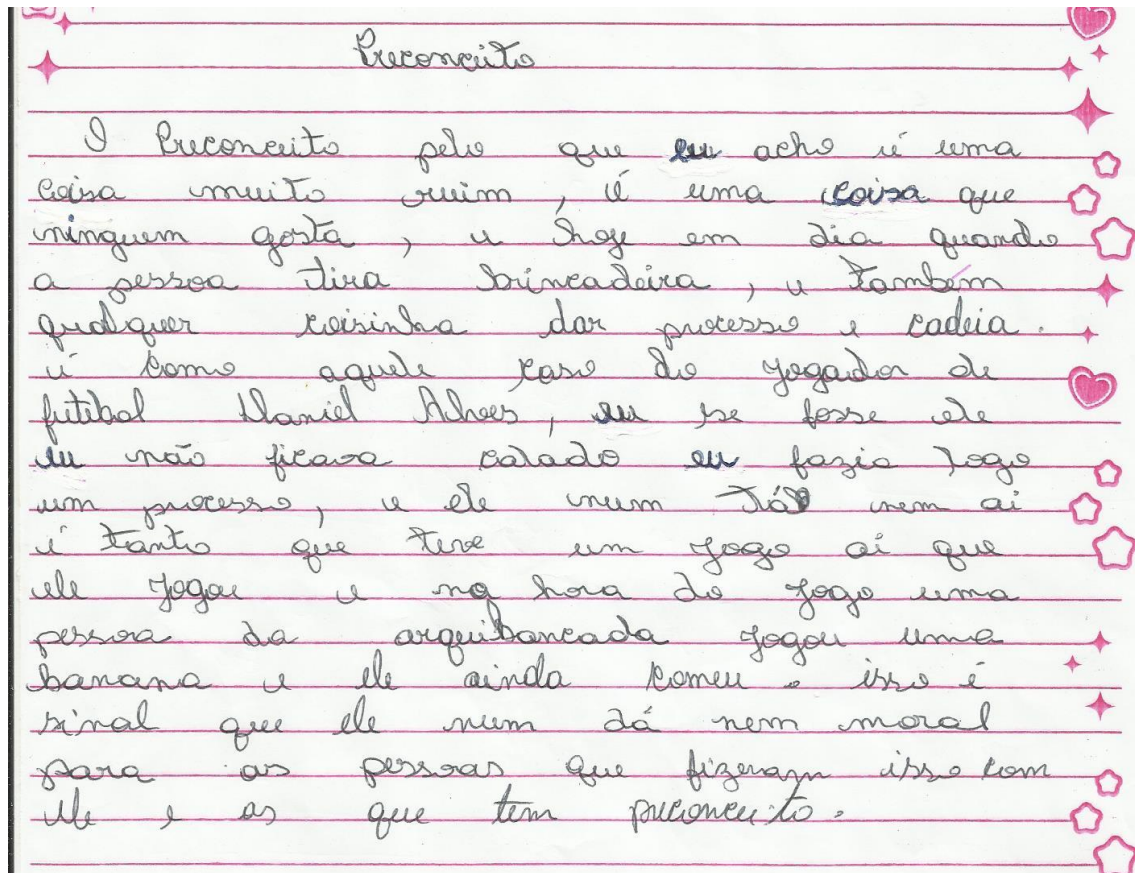 Preconceito
O Preconceito pelo que eu acho é uma
coisa muito ruim, é uma coisa que
ninguem gosta, e hoje em dia quando
a pessoa tira brincadeira, e também
qualquer coisinha dar processo e cadeia.
é como aquele caso do jogador de
futibol Daniel Alves, eu se fosse ele
eu não ficava calado eu fazia logo
um processo, e ele num dá nem ai
é tanto que teve um jogo ai que
ele jogou e na hora do jogo uma
pessoa da arquibancada jogou uma
banana e ele ainda comeu. isso é
sinal que ele num dá nem moral
para as pessoas que fizeram isso com
ele e as que tem preconceito.